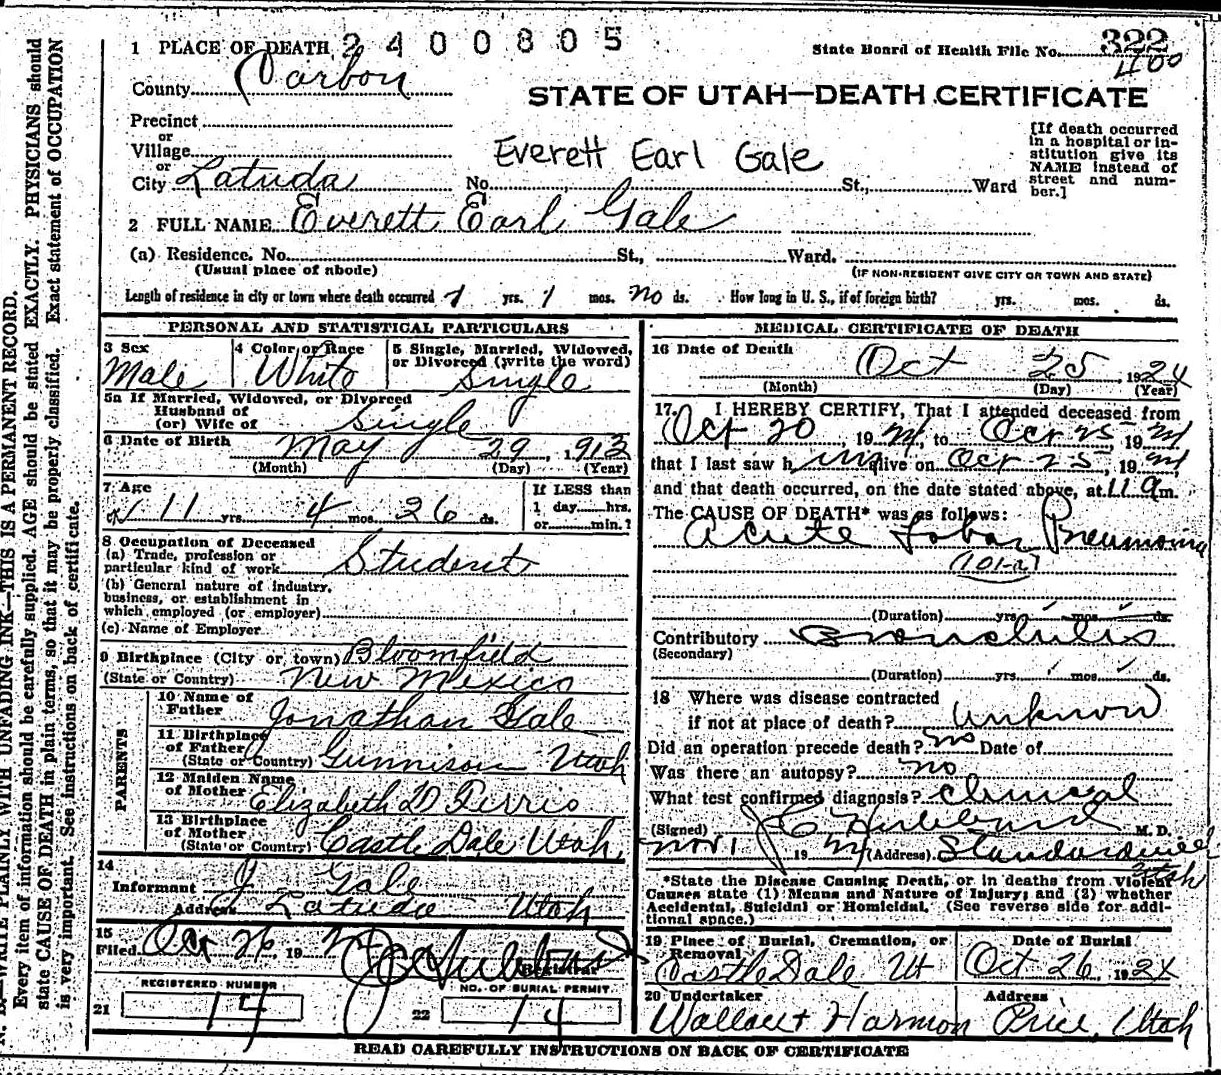 1 PLACE OF DEATH 2400805
State Board of Health File No. 322
400
County Carbon
STATE OF UTAH—DEATH CERTIFICATE
Precinct
or
Village
or
City Latuda No. St., Ward
Everett Earl Gale
[If death occurred in a hospital or institution give its NAME instead of street and number.]
2 FULL NAME Everett Earl Gale
(a) Residence. No. St., Ward.
(Usual place of abode) (IF NON-RESIDENT GIVE CITY OR TOWN AND STATE)
Length of residence in city or town where death occurred 1 yrs. 1 mos. no ds. How long in U. S., if of foreign birth? yrs. mos. ds.
PERSONAL AND STATISTICAL PARTICULARS
3 Sex Male
4 Color or Race White
5 Single, Married, Widowed, or Divorced (write the word) Single
5a If Married, Widowed, or Divorced
Husband of
(or) Wife of Single
6 Date of Birth May 29, 1913
(Month) (Day) (Year)
7 Age 11 yrs. 4 mos. 26 ds.
If LESS than 1 day hrs. or min.?
8 Occupation of Deceased
(a) Trade, profession or particular kind of work Student
(b) General nature of industry, business, or establishment in which employed (or employer)
(c) Name of Employer
9 Birthplace (City or town) Bloomfield
(State or Country) New Mexico
PARENTS
10 Name of Father Jonathan Gale
11 Birthplace of Father (State or Country) Gunnison Utah
12 Maiden Name of Mother Elizabeth D Ferrio
13 Birthplace of Mother (State or Country) Castle Dale Utah,
14
Informant J Gale
Address Latuda Utah
15
Filed Oct 26 1924 J C Hubbard
Registrar
REGISTERED NUMBER
21 14
NO. OF BURIAL PERMIT
22 14
MEDICAL CERTIFICATE OF DEATH
16 Date of Death Oct 25, 1924
(Month) (Day) (Year)
17. I HEREBY CERTIFY, That I attended deceased from
Oct 20, 1924, to Oct 25, 1924
that I last saw him alive on Oct 25, 1924
and that death occurred, on the date stated above, at 11 am.
The CAUSE OF DEATH* was as follows:
Acute Lobar Pneumonia
(101-a)
(Duration) yrs. mos. ds.
Contributory Bronchitis
(Secondary)
(Duration) yrs. mos. ds.
18 Where was disease contracted
if not at place of death? unknown
Did an operation precede death? no Date of
Was there an autopsy? no
What test confirmed diagnosis? clinical
(Signed) J C Hubbard M. D.
Nov 1 1924 (Address) Standardville Utah
*State the Disease Causing Death, or in deaths from Violent
Causes state (1) Means and Nature of Injury; and (2) whether
Accidental, Suicidal or Homicidal. (See reverse side for additional space.)
19 Place of Burial, Cremation, or Removal Castle Dale Ut
Date of Burial Oct 26, 1924
20 Undertaker Wallace & Harmon
Address Price, Utah
READ CAREFULLY INSTRUCTIONS ON BACK OF CERTIFICATE
N. B.—WRITE PLAINLY WITH UNFADING INK—THIS IS A PERMANENT RECORD.
Every item of information should be carefully supplied. AGE should be stated EXACTLY. PHYSICIANS should
state CAUSE OF DEATH in plain terms, so that it may be properly classified. Exact statement of OCCUPATION
is very important. See instructions on back of certificate.